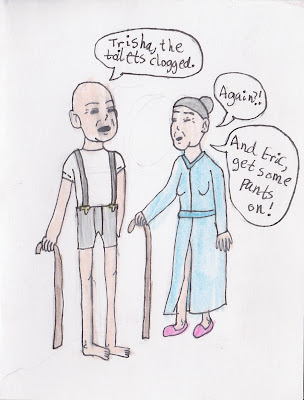 Trisha, the
toilets clogged.
Again?!
And Eric,
get some
pants
on!